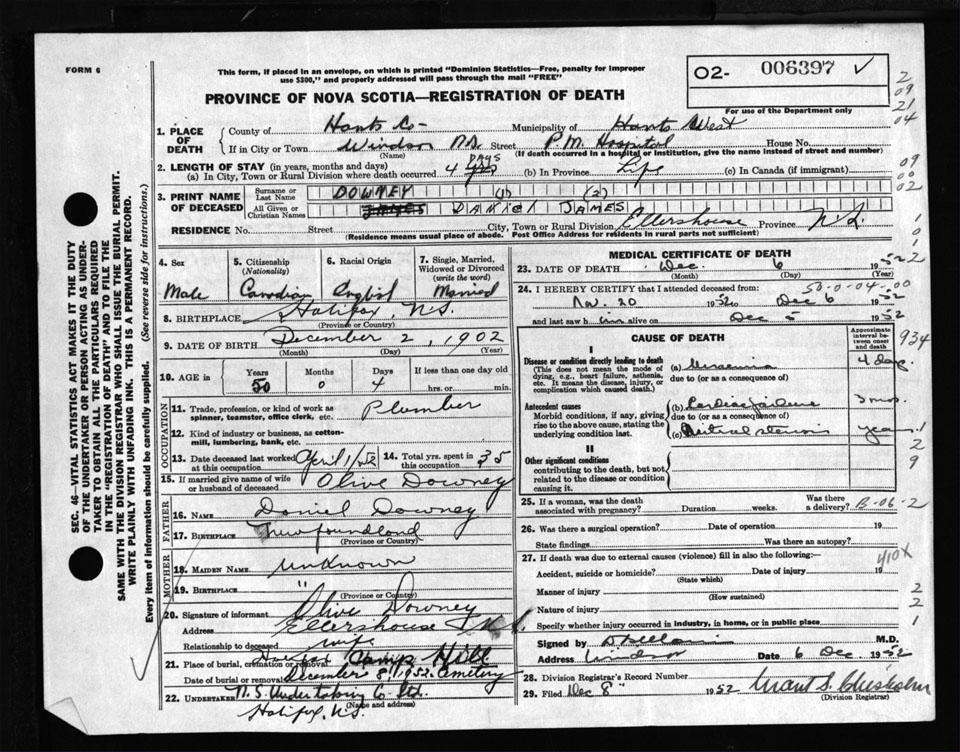 FORM 6
This form, if placed in an envelope, on which is printed "Dominion Statistics—Free, penalty for improper
use $300," and properly addressed will pass through the mail "FREE"
O2- 006397 ✓
For use of the Department only
PROVINCE OF NOVA SCOTIA—REGISTRATION OF DEATH
2
09
21
04
1. PLACE OF DEATH
County of Hants Co- Municipality of Hants West
If in City or Town Windsor N.S. Street P.M. Hospital House No.
(Name) (If death occurred in a hospital or institution, give the name instead of street and number)
2. LENGTH OF STAY (in years, months and days)
(a) In City, Town or Rural Division where death occurred 4 days (b) In Province Life (c) In Canada (if immigrant)
09
00
02
3. PRINT NAME OF DECEASED
Surname or Last Name DOWNEY (1) (2)
All Given or Christian Names JAMES DANIEL JAMES
RESIDENCE No. Street City, Town or Rural Division Ellershouse Province N.S.
(Residence means usual place of abode. Post Office Address for residents in rural parts not sufficient)
SEC. 46—VITAL STATISTICS ACT MAKES IT THE DUTY
OF THE UNDERTAKER OR PERSON ACTING AS UNDER-
TAKER TO OBTAIN ALL THE PARTICULARS REQUIRED
IN THE "REGISTRATION OF DEATH" AND TO FILE THE
SAME WITH THE DIVISION REGISTRAR WHO SHALL ISSUE THE BURIAL PERMIT.
WRITE PLAINLY WITH UNFADING INK. THIS IS A PERMANENT RECORD.
Every item of Information should be carefully supplied. (See reverse side for instructions.)
4. Sex
Male
5. Citizenship
(Nationality)
Canadian
6. Racial Origin
English
7. Single, Married,
Widowed or Divorced
(write the word)
Married
8. BIRTHPLACE Halifax, N.S.
(Province or Country)
9. DATE OF BIRTH December 2, 1902
(Month) (Day) (Year)
10. AGE in
Years Months Days If less than one day old
50 0 4 hrs. or min.
OCCUPATION
11. Trade, profession, or kind of work as
spinner, teamster, office clerk, etc. Plumber
12. Kind of industry or business, as cotton-
mill, lumbering, bank, etc.
13. Date deceased last worked
at this occupation April 1/52
14. Total yrs. spent in
this occupation 35
15. If married give name of wife
or husband of deceased Olive Downey
FATHER
16. NAME Daniel Downey
17. BIRTHPLACE Newfoundland
(Province or Country)
MOTHER
18. MAIDEN NAME unknown
19. BIRTHPLACE "
(Province or Country)
20. Signature of informant Olive Downey
Address Ellershouse N.S.
Relationship to deceased wife
21. Place of burial, cremation or removal Halifax Camp Hill
Date of burial or removal December 8, 1952. Cemetery
22. UNDERTAKER N.S. Undertaking Co Ltd.
(Name and address)
Halifax, N.S.
MEDICAL CERTIFICATE OF DEATH
23. DATE OF DEATH Dec. 6 1952
(Month) (Day) (Year)
24. I HEREBY CERTIFY that I attended deceased from:
50-0-04-00
Nov. 20 1952 to Dec 6 1952
and last saw him alive on Dec 5 1952
CAUSE OF DEATH
Approximate
interval between
onset
and death
934
I
Disease or condition directly leading to death
(This does not mean the mode of
dying, e.g., heart failure, asthenia,
etc. It means the disease, injury, or
complication which caused death.)
(a) Uraemia 4 days
due to (or as a consequence of)
Antecedent causes
Morbid conditions, if any, giving
rise to the above cause, stating the
underlying condition last.
(b) Cardiac failure 3 mos.
due to (or as a consequence of)
(c) Mitral stenosis years
1
2
9
II
Other significant conditions
contributing to the death, but not
related to the disease or condition
causing it.
25. If a woman, was the death
associated with pregnancy? Duration weeks. Was there
a delivery? B-06-2
26. Was there a surgical operation? Date of operation 19
State findings Was there an autopsy?
27. If death was due to external causes (violence) fill in also the following:—
410X
Accident, suicide or homicide? Date of injury 19
(State which)
Manner of injury
(How sustained)
Nature of injury
Specify whether injury occurred in industry, in home, or in public place
2
2
1
Signed by M.D.
Address Windsor Date 6 Dec 1952
28. Division Registrar's Record Number
29. Filed Dec 8" 1952 Grant S. Chisholm
(Division Registrar)